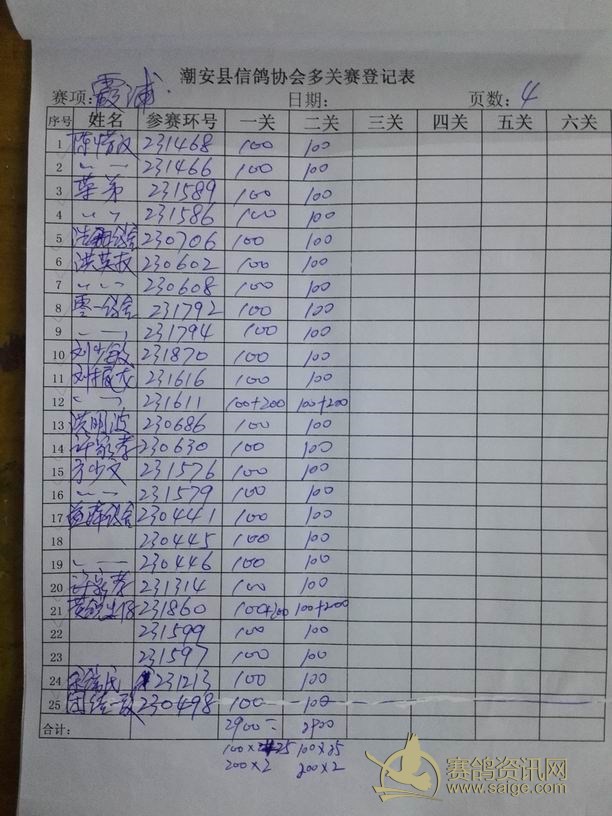 潮安县信鸽协会多关赛登记表
赛项: 霞浦 日期: 页数: 4
序号 姓名 参赛环号 一关 二关 三关 四关 五关 六关
1 231468 100 100
2 〃 一 231466 100 100
3 蔡弟 231589 100 100
4 〃 〃 231586 100 100
5 230706 100 100
6 洪英枝 230602 100 100
7 〃 〃 230608 100 100
8 231792 100 100
9 231794 100 100
10 刘少敏 231870 100 100
11 刘振龙 231616 100 100
12 〃 一 231611 100+200 100+200
13 洪明波 230686 100 100
14 230630 100 100
15 方少文 231576 100 100
16 〃 一 231579 100 100
17 230441 100 100
18 230445 100 100
19 230446 100 100
20 231314 100 100
21 231860 100+200 100+200
22 231599 100 100
23 231597 100 100
24 231213 100 100
25 230498 100 100
合计: 2900 2900
100×25 100×25
200×2 200×2
赛鸽资讯网
www.saige.com